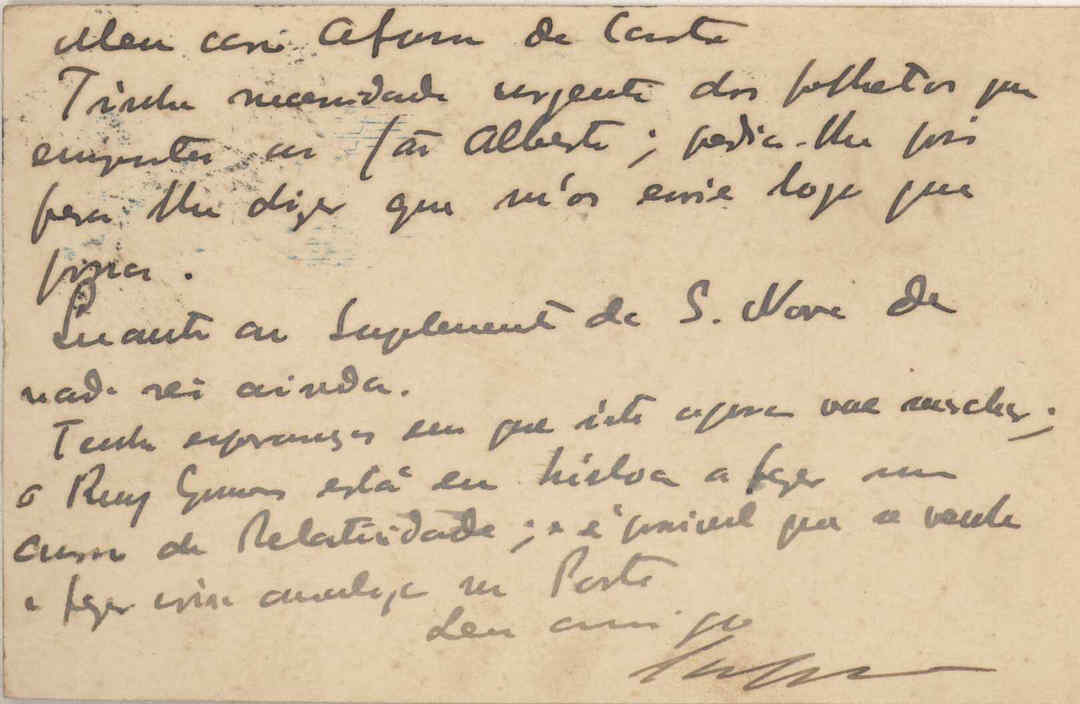 Meu caro Afonso da Costa
Tinha necessidade urgente dos folhetos que
emprestei ao São Alberto; pedia-lhe pois
para lhe dizer que m'os envie logo que
possa.
Quanto ao Suplemento da S. Nova de
nada sei ainda.
Tenho esperanças em que isto agora vae marchar;
o Ruy Gomes está em Lisboa a fazer um
curso de Relatividade; e é possivel que o venha
a fazer coisa analoga no Porto
Seu amigo